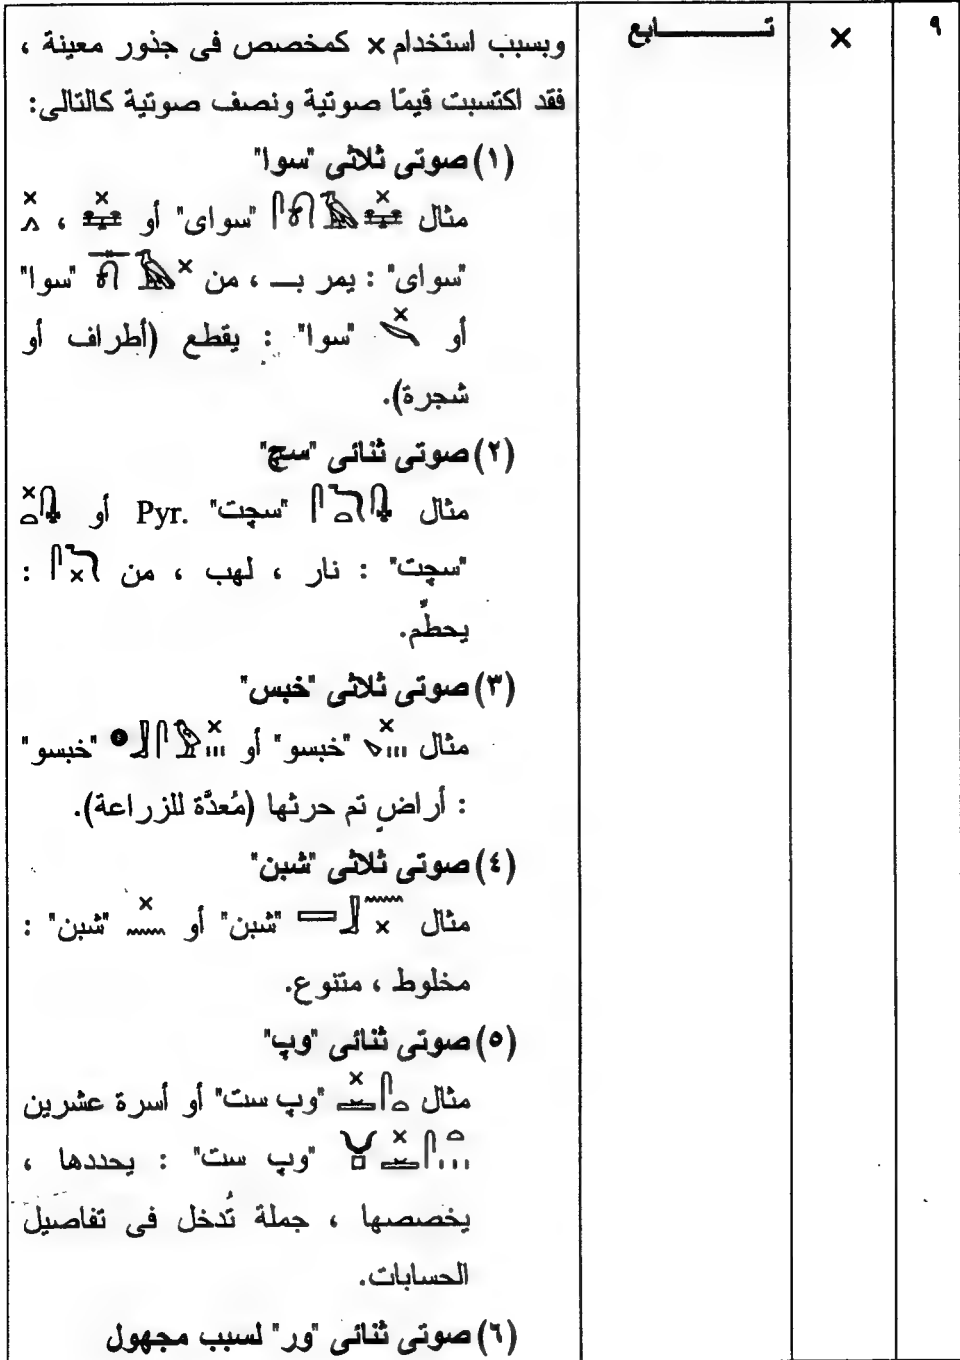 ٩ × تـــــابع وبسبب استخدام × كمخصص فى جذور معينة ،
فقد اكتسبت قيمًا صوتية ونصف صوتية كالتالى:
(١) صوتى ثلاثى "سوا"
مثال "سواى" أو ،
"سواى" : يمر بــ ، من "سوا"
أو "سوا" : يقطع (أطراف أو
شجرة).
(٢) صوتى ثنائى "سچ"
مثال "سچت" Pyr. أو
"سچت" : نار ، لهب ، من :
يحطِّم.
(٣) صوتى ثلاثى "خبس"
مثال "خبسو" أو "خبسو"
: أراضٍ تم حرثها (مُعدَّة للزراعة).
(٤) صوتى ثلاثى "شبن"
مثال "شبن" أو "شبن" :
مخلوط ، متنوع.
(٥) صوتى ثنائى "وپ"
مثال "وپ ست" أو أسرة عشرين
"وپ ست" : يحددها ،
يخصصها ، جملة تُدخل فى تفاصيل
الحسابات.
(٦) صوتى ثنائى "ور" لسبب مجهول